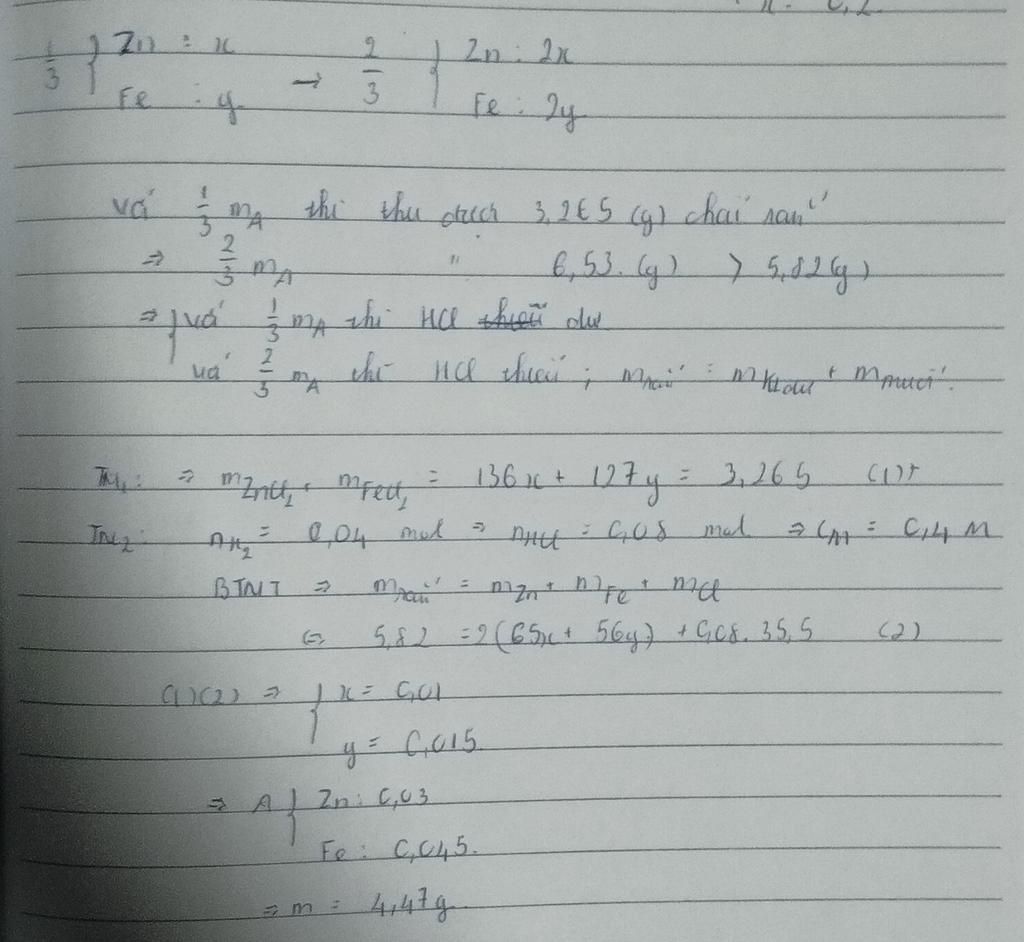 1/3 { Zn : x → 2/3 { Zn : 2x
Fe : y Fe : 2y
Với 1/3 mA thì thu được 3,265 (g) chất rắn
⇒ 2/3 mA " 6,53. (g) > 5,82 (g)
⇒ { với 1/3 mA thì HCl dư
với 2/3 mA thì HCl thiếu ; mrắn = mKl dư + mmuối.
TN1: ⇒ mZnCl2 + mFeCl2 = 136x + 127y = 3,265 (1)
TN2: nH2 = 0,04 mol ⇒ nHCl = 0,08 mol ⇒ CM = 0,4 M
BTNT ⇒ mrắn = mZn + mFe + mCl
⇔ 5,82 = 2(65x + 56y) + 0,08. 35,5 (2)
(1)(2) ⇒ { x = 0,01
y = 0,015
⇒ A { Zn : 0,03
Fe : 0,045.
⇒ m = 4,47g